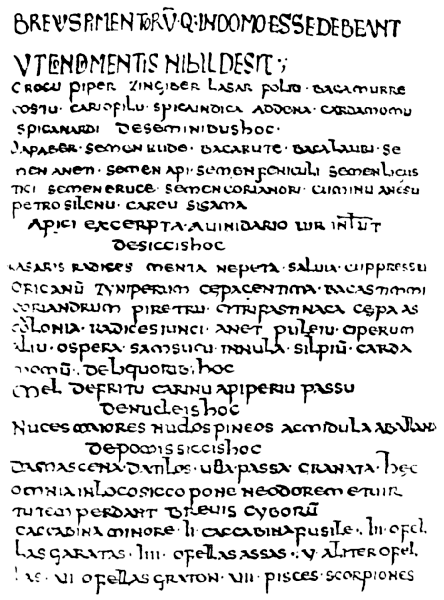 BREVIS PIMENTORŪ · Q · IN DOMO ESSE DEBEANT
UT CONDIMENTIS NIHIL DESIT ;
CROCU PIPER ZINGIBER LASAR FOLIU · BACA MURRE
COSTU · CARIOFILU · SPICA INDICA ADDENA · CARDAMOMU
SPICANARDI DE SEMINIBUS HOC ·
PAPABER · SEMEN RUDE · BACA RUTE · BACA LAURI · SE
MEN ANETI · SEMEN API · SEMEN FENICULI SEMEN LIGUS
TICI SEMEN ERUCE · SEMEN CORIANDRI · CUMINU ANESU
PETROSILENU · CAREU SISAMA
APICI EXCERPTA A UINIDARIO UIR INLUT
DE SICCIS HOC
LASARIS RADICES MENTA NEPETA · SALUIA · CUPPRESSU
ORIGANŪ ZYNIPERUM CEPA GENTIMA · BACAS TIMMI
CORIANDRUM PIRETRU · CITRI FASTINACA CEPA AS
COLONIA · RADICES IUNCI · ANET PULEIU · CIPERUM
ALIU · OSPERA · SAMSUCU · INNULA · SILPIŪ · CARDA
MOMŪ · DE LIQUORIB; HOC
MEL DEFRITU CARINU APIPERIU PASSU
DE NUCLEIS HOC
NUCES MAIORES NUCLOS PINEOS ACMIDULA ABALLANA
DE POMIS SICCIS HOC
DAMASCENA · DATILOS · UBA PASSA GRANATA · HEC
OMNIA IN LOCO SICCO PONE NE ODOREM ET UIR
TUTEM PERDANT BREUIS CYBORŪ
CACCABINA MINORE · II CACCABINA FUSILE · III OFEL
LAS GARATAS · IIII · OFELLAS ASSAS · V · ALITER OFEL
LAS · VI OFELLAS GRATON · VII · PISCES · SCORPIONES